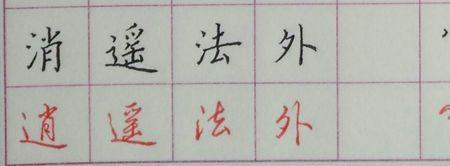 消遥法外
逍遥法外